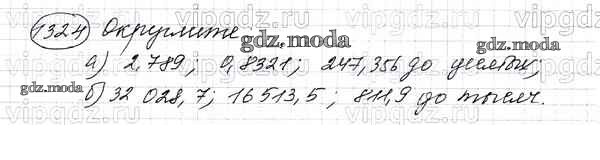 1324 Округлите
а) 2,789; 0,8321; 247,356 до десятых;
б) 32 028,7; 16513,5; 811,9 до тысяч.
gdz.moda
gdz.moda
gdz.moda